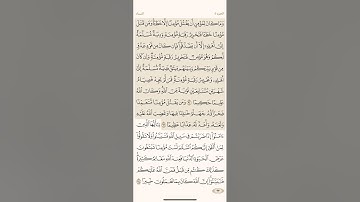 وَمَا كَانَ لِمُؤْمِنٍ أَن يَقْتُلَ مُؤْمِنًا إِلَّا خَطَـًٔا وَمَن قَتَلَ
مُؤْمِنًا خَطَـًٔا فَتَحْرِيرُ رَقَبَةٍ مُّؤْمِنَةٍ وَدِيَةٌ مُّسَلَّمَةٌ
إِلَىٰٓ أَهْلِهِۦٓ إِلَّآ أَن يَصَّدَّقُوا۟ فَإِن كَانَ مِن قَوْمٍ عَدُوٍّ
لَّكُمْ وَهُوَ مُؤْمِنٌ فَتَحْرِيرُ رَقَبَةٍ مُّؤْمِنَةٍ وَإِن كَانَ
مِن قَوْمٍۭ بَيْنَكُمْ وَبَيْنَهُم مِّيثَٰقٌ فَدِيَةٌ مُّسَلَّمَةٌ إِلَىٰٓ
أَهْلِهِۦ وَتَحْرِيرُ رَقَبَةٍ مُّؤْمِنَةٍ فَمَن لَّمْ يَجِدْ فَصِيَامُ
شَهْرَيْنِ مُتَتَابِعَيْنِ تَوْبَةً مِّنَ ٱللَّهِ وَكَانَ ٱللَّهُ
عَلِيمًا حَكِيمًا ٩٢ وَمَن يَقْتُلْ مُؤْمِنًا مُّتَعَمِّدًا
فَجَزَآؤُهُۥ جَهَنَّمُ خَٰلِدًا فِيهَا وَغَضِبَ ٱللَّهُ عَلَيْهِ
وَلَعَنَهُۥ وَأَعَدَّ لَهُۥ عَذَابًا عَظِيمًا ٩٣ يَٰٓأَيُّهَا ٱلَّذِينَ
ءَامَنُوٓا۟ إِذَا ضَرَبْتُمْ فِى سَبِيلِ ٱللَّهِ فَتَبَيَّنُوا۟ وَلَا تَقُولُوا۟
لِمَنْ أَلْقَىٰٓ إِلَيْكُمُ ٱلسَّلَٰمَ لَسْتَ مُؤْمِنًا تَبْتَغُونَ
عَرَضَ ٱلْحَيَوٰةِ ٱلدُّنْيَا فَعِندَ ٱللَّهِ مَغَانِمُ كَثِيرَةٌ
كَذَٰلِكَ كُنتُم مِّن قَبْلُ فَمَنَّ ٱللَّهُ عَلَيْكُمْ
فَتَبَيَّنُوٓا۟ إِنَّ ٱللَّهَ كَانَ بِمَا تَعْمَلُونَ خَبِيرًا ٩٤